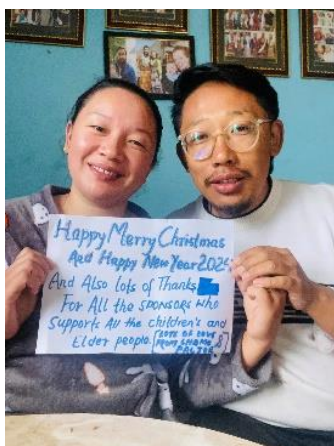 Happy Merry Christmas
And Happy New Year 2025
And Also lots of Thanks
For All the sponsors who
Supports All the children's and
Elder people.
LOTS OF LOVE
FROM